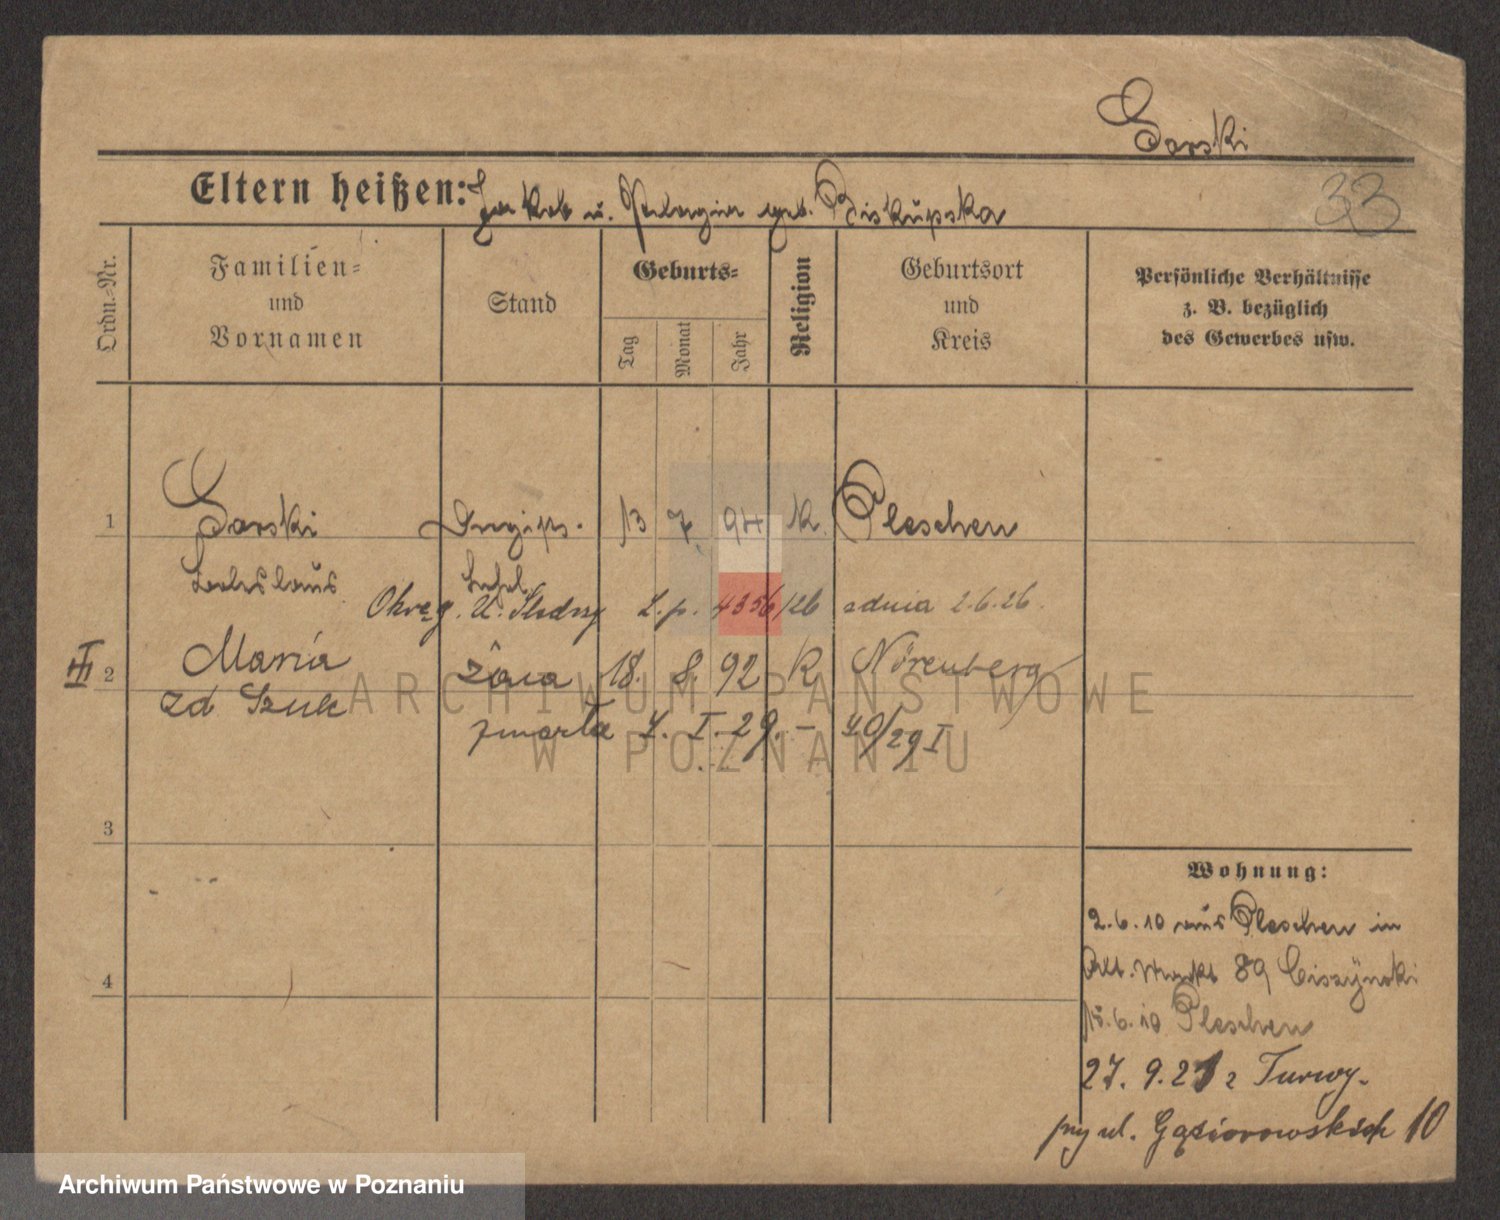 Gorski
33
Eltern heißen: Jakob u. Pelagia geb. Biskupska
Ordn.-Nr.
Familien- und Vornamen
Stand
Geburts-
Tag
Monat
Jahr
Religion
Geburtsort und Kreis
Persönliche Verhältnisse z. B. bezüglich des Gewerbes usw.
1 Gorski 13 7 94 K. Pleschen
Boleslaus
Okręg. U. Śledczy L.p. 4356/26 z dnia 2.6.26.
III 2 Maria żona 18. 8. 92 K Nörenberg
zd Szulc
zmarła 4. I. 29. – 40/29 I
3
4
Wohnung:
2.6.10 aus Pleschen in
Alt. Markt 89 Ciszynski
15.6.10 Pleschen
27. 9. 21 z
przy ul. Gąsiorowskich 10
ARCHIWUM PAŃSTWOWE
W POZNANIU
Archiwum Państwowe w Poznaniu